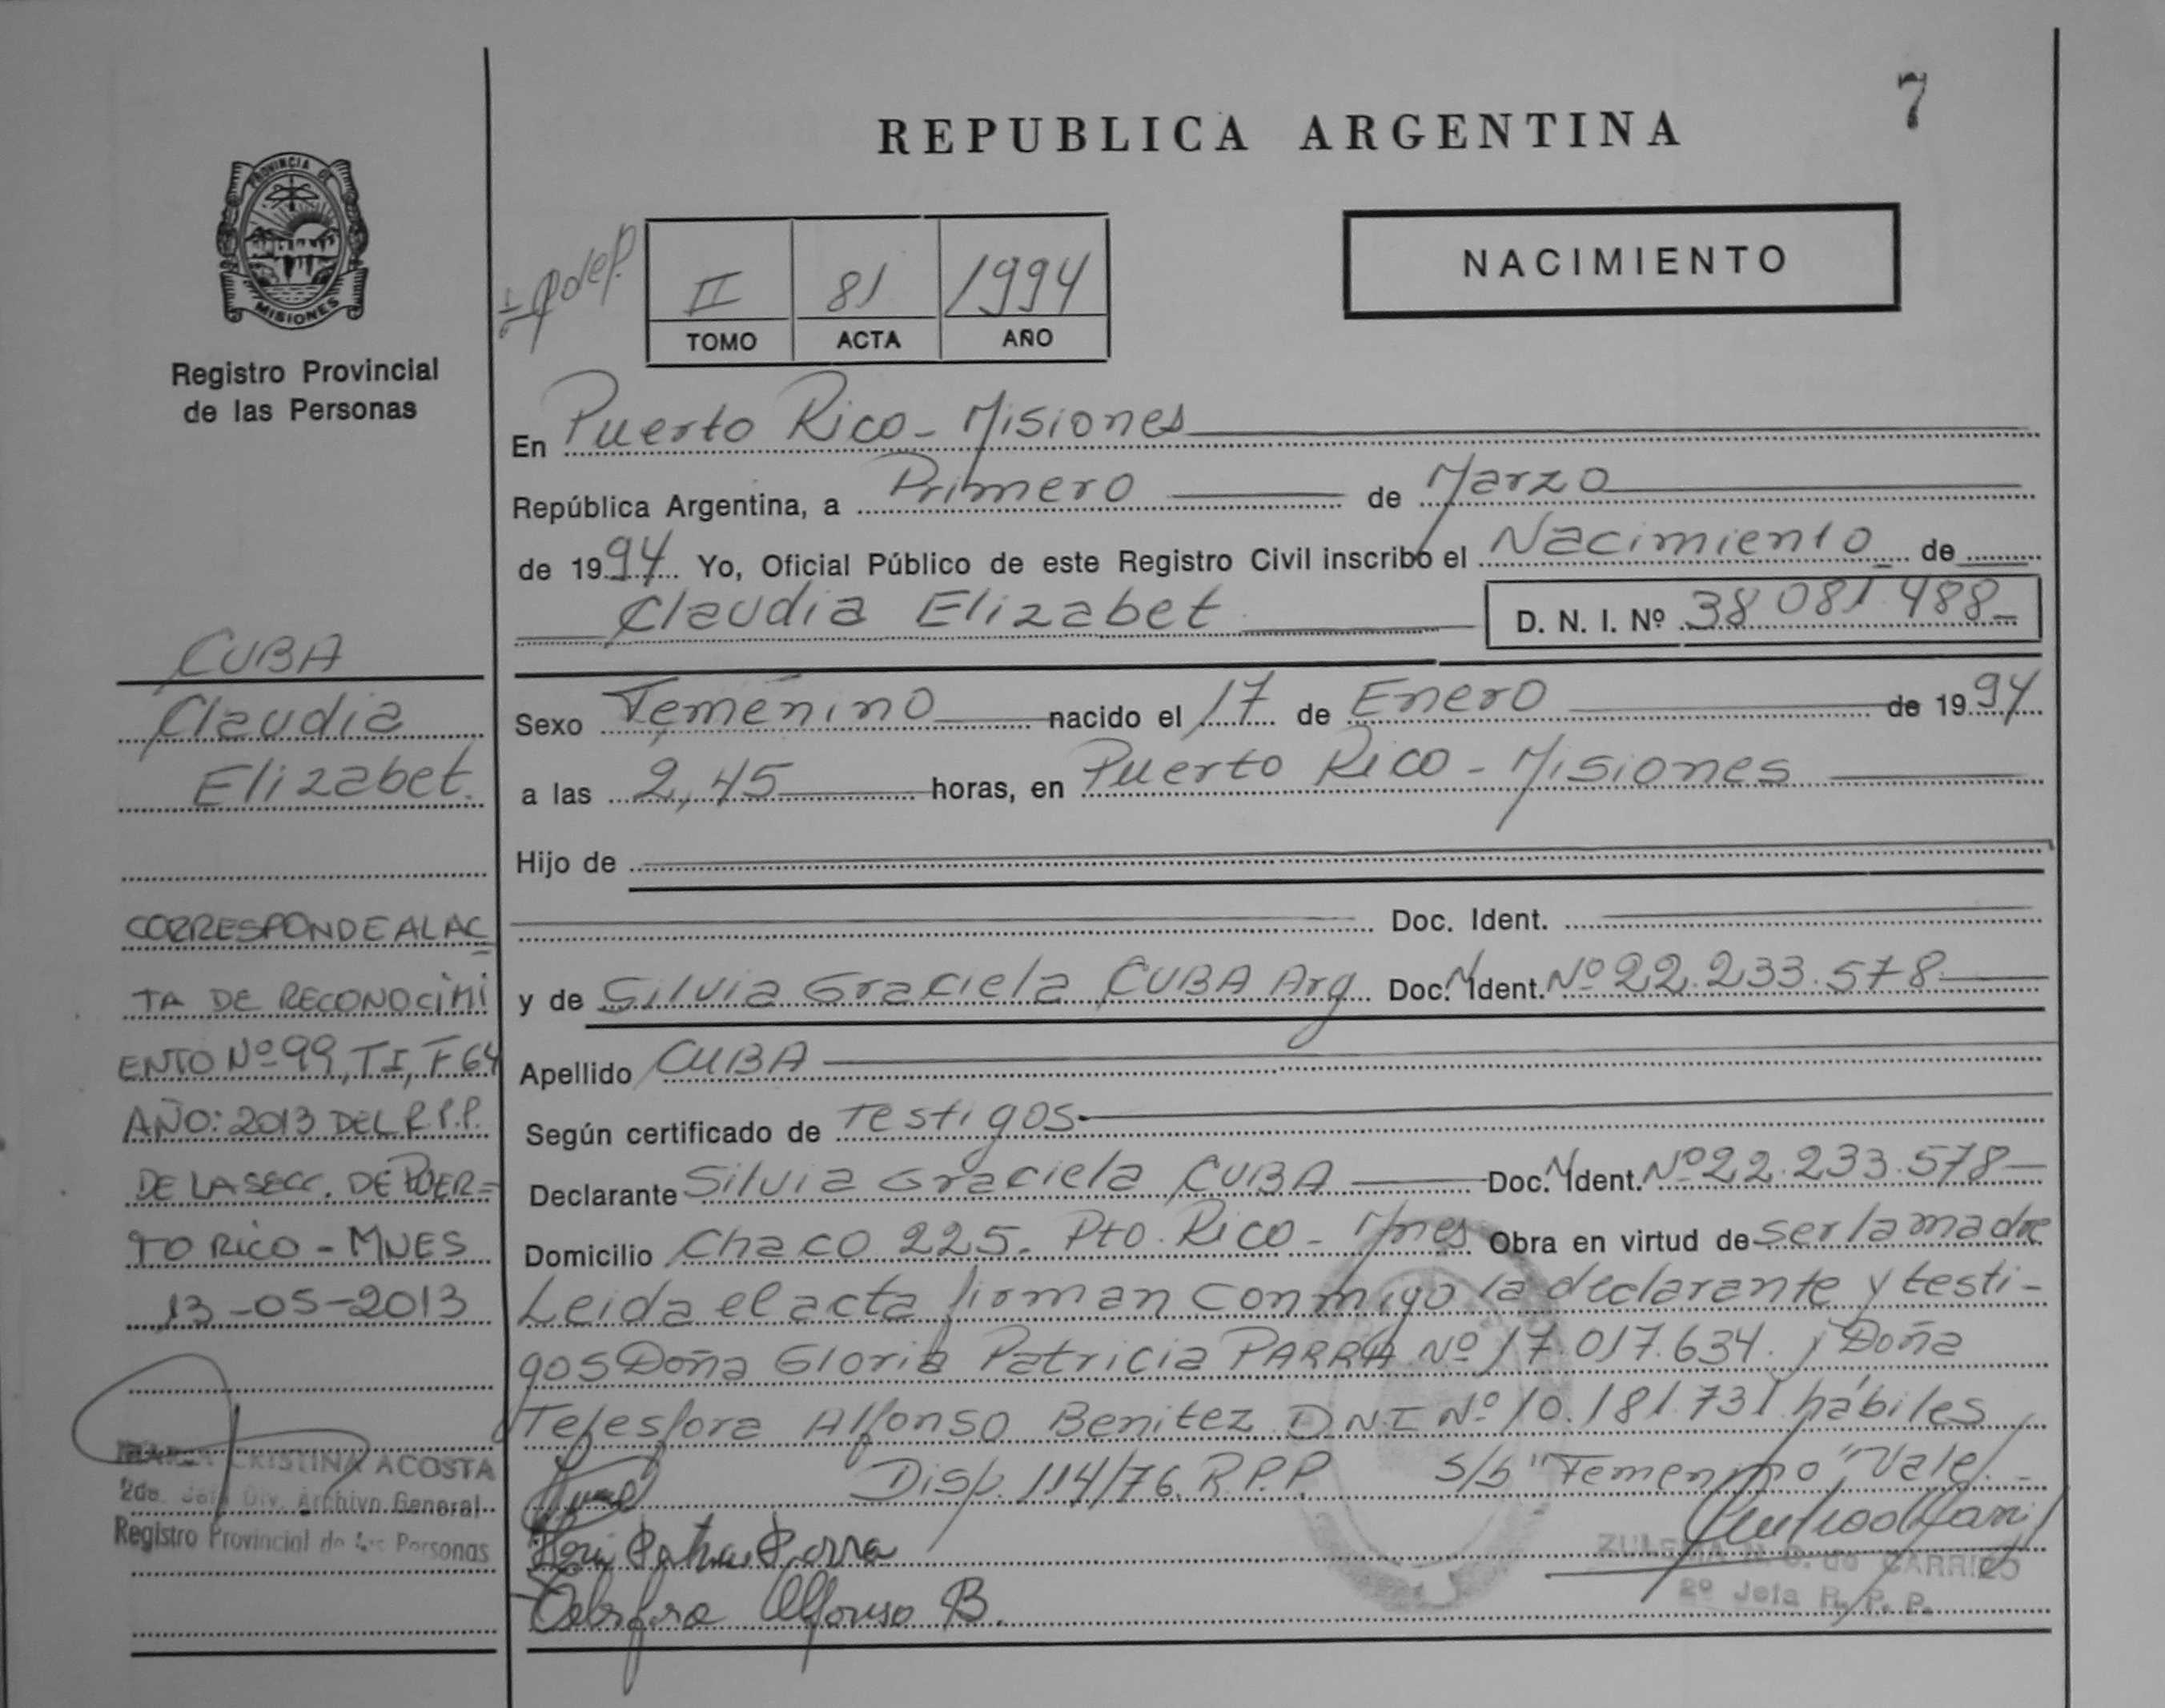 7
REPUBLICA ARGENTINA
PROVINCIA DE
MISIONES
Registro Provincial
de las Personas
II 81 1994
TOMO ACTA AÑO
NACIMIENTO
En Puerto Rico - Misiones
República Argentina, a Primero de Marzo
de 1994 Yo, Oficial Público de este Registro Civil inscribo el Nacimiento de
Claudia Elizabet D. N. I. Nº 38.081.488
Sexo Femenino nacido el 17 de Enero de 1994
a las 2,45 horas, en Puerto Rico - Misiones
Hijo de
Doc. Ident.
y de Silvia Graciela CUBA Arg Doc. N. Ident. Nº 22.233.578
Apellido CUBA
Según certificado de Testigos
Declarante Silvia Graciela CUBA Doc. N. Ident. Nº 22.233.578
Domicilio Chaco 225. Pto. Rico - Mnes Obra en virtud de ser la madre
Leida el acta firman conmigo la declarante y testi-
gos Doña Gloria Patricia PARRA Nº 17.017.634. y Doña
Telesfora Alfonso Benitez DNI Nº 10.181.731 hábiles
Disp. 114/76. R.P.P. S/b "Femenino" Vale/.-
Patricia Parra
Telesfora Alfonso B.
ZULEMA N. O. de CARRIZO
2º Jefa R. P. P.
CUBA
Claudia
Elizabet.
CORRESPONDE AL AC
TA DE RECONOCIMI
ENTO Nº 99, T I, F 64
AÑO: 2013 DEL R.P.P.
DE LA SECC. DE PUER=
TO RICO - MNES
13-05-2013
MARIA CRISTINA ACOSTA
2da. Jefa Div. Archivo General
Registro Provincial de las Personas